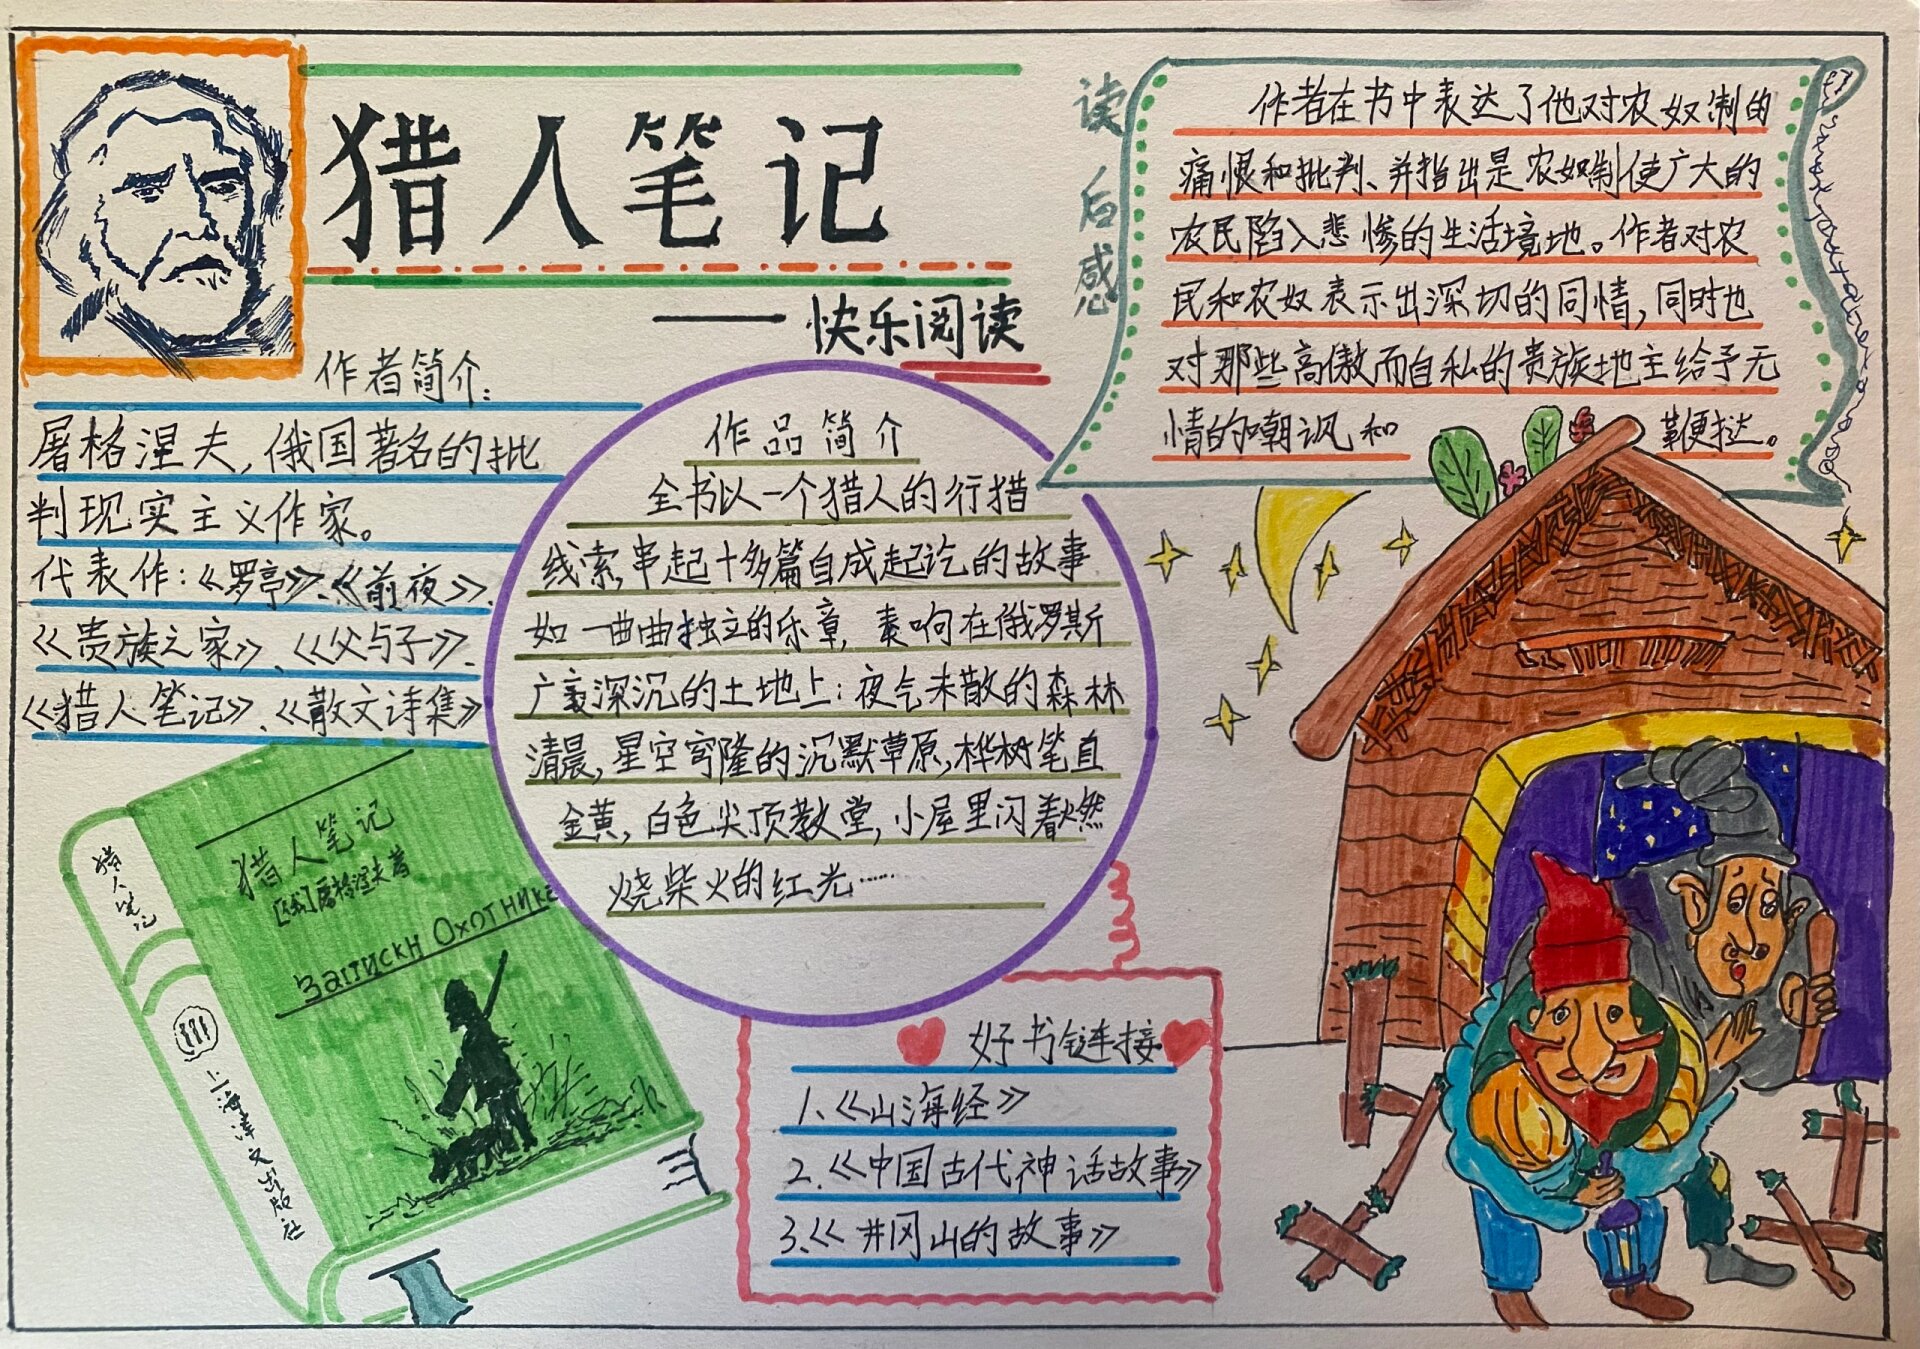 猎人笔记
——快乐阅读
作者简介:
屠格涅夫,俄国著名的批
判现实主义作家。
代表作:《罗亭》、《前夜》、
《贵族之家》、《父与子》、
《猎人笔记》、《散文诗集》
作品简介
全书以一个猎人的行猎
线索,串起十多篇自成起讫的故事.
如一曲曲独立的乐章,奏响在俄罗斯
广袤深沉的土地上:夜气未散的森林
清晨,星空穹隆的沉默草原,桦树笔直
金黄,白色尖顶教堂,小屋里闪着燃
烧柴火的红光……
读后感
作者在书中表达了他对农奴制的
痛恨和批判、并指出是农奴制使广大的
农民陷入悲惨的生活境地。作者对农
民和农奴表示出深切的同情,同时也
对那些高傲而自私的贵族地主给予无
情的嘲讽和 鞭挞。
猎人笔记
猎人笔记
[俄]屠格涅夫著
Записки Охотника
上海译文出版社
好书链接
1、《山海经》
2.《中国古代神话故事》
3.《井冈山的故事》